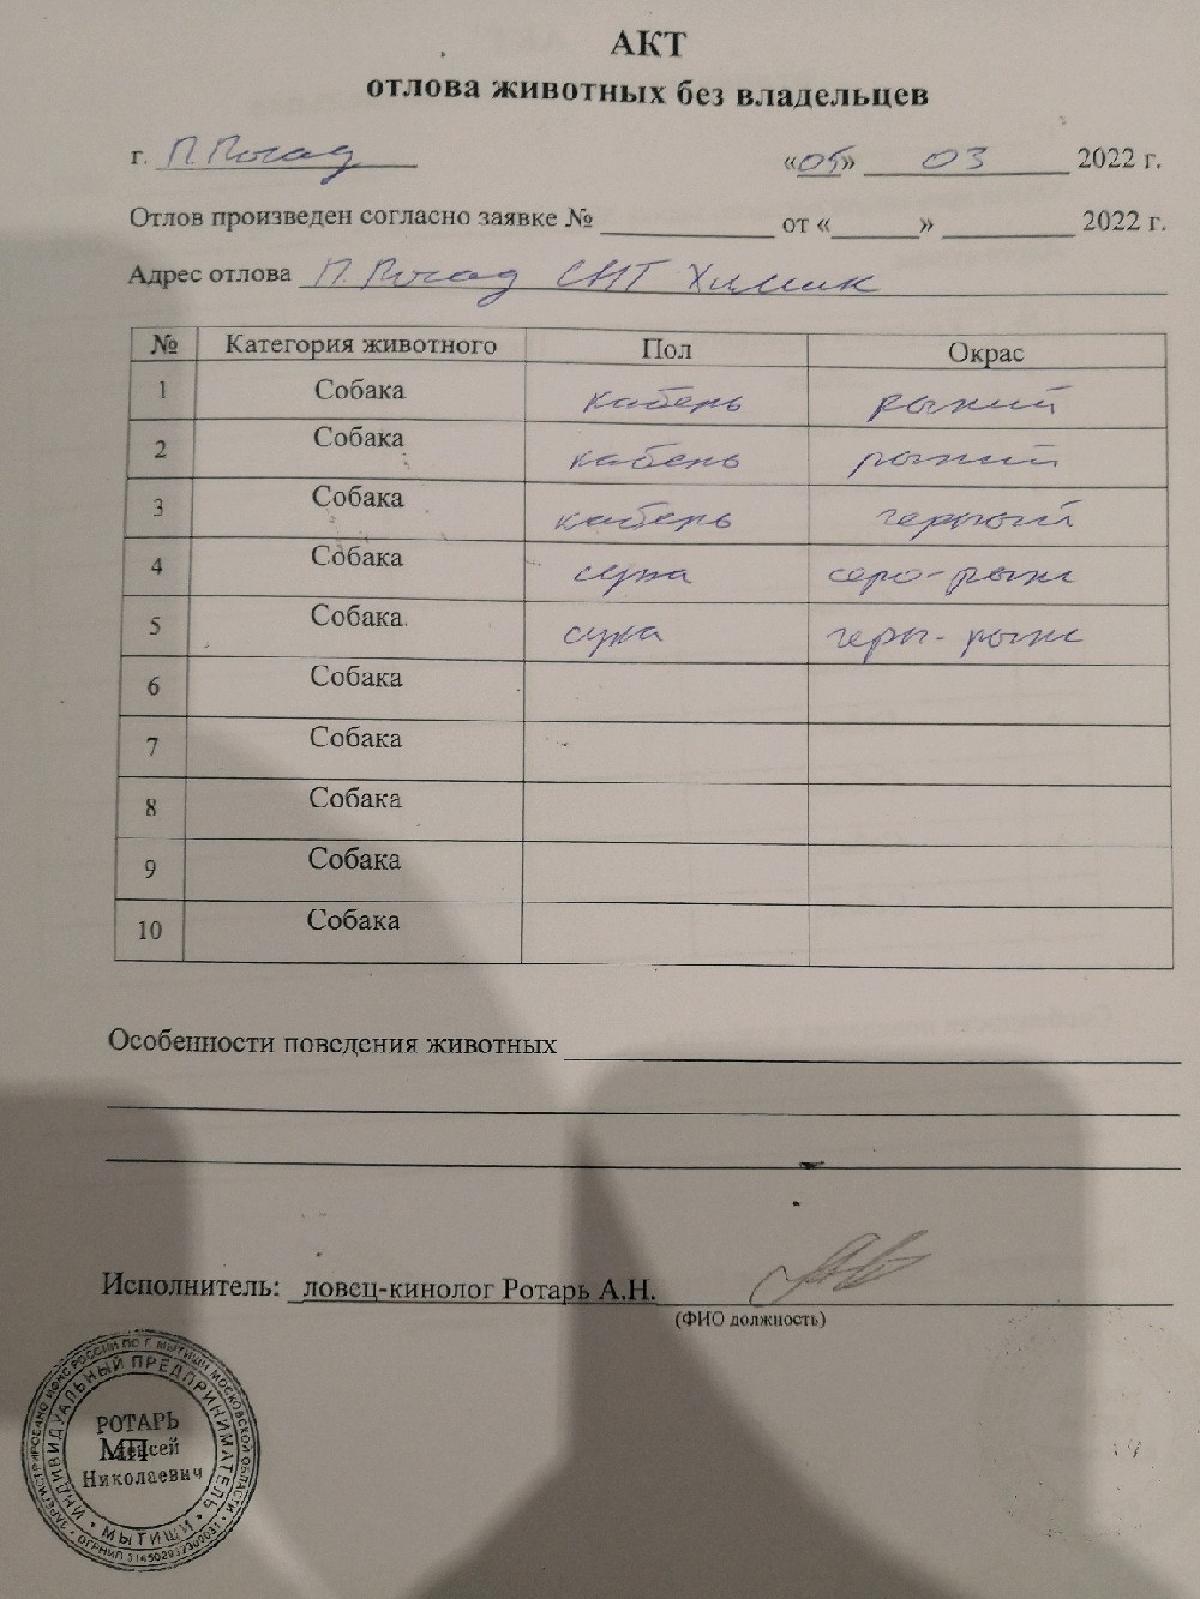 АКТ
отлова животных без владельцев
г. П. Посад «05» 03 2022 г.
Отлов произведен согласно заявке № от « » 2022 г.
Адрес отлова П. Посад СНТ Химик
№ Категория животного Пол Окрас
1 Собака кабель рыжий
2 Собака кабель рыжий
3 Собака кабель черный
4 Собака сука серо-рыж
5 Собака сука черн-рыж
6 Собака
7 Собака
8 Собака
9 Собака
10 Собака
Особенности поведения животных
Исполнитель: ловец-кинолог Ротарь А.Н.
(ФИО должность)
ЗАРЕГИСТРИРОВАНО ИФНС РОССИИ ПО Г. МЫТИЩИ МОСКОВСКОЙ ОБЛАСТИ
ИНДИВИДУАЛЬНЫЙ ПРЕДПРИНИМАТЕЛЬ
РОТАРЬ
МП Алексей
Николаевич
МЫТИЩИ
ОГРНИП